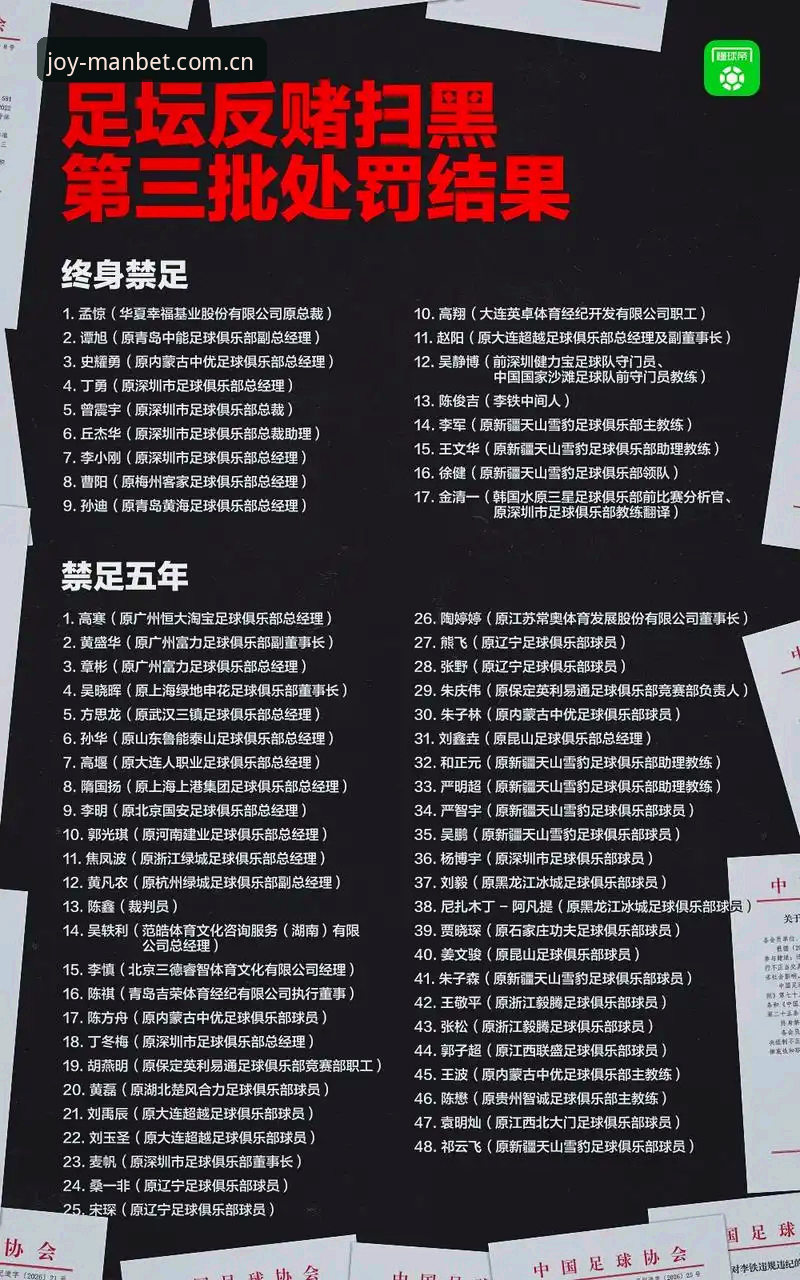 joy-manbet.com.cn
懂球帝
足坛反赌扫黑
第三批处罚结果
终身禁足
1. 孟惊（华夏幸福基业股份有限公司原总裁）
2. 谭旭（原青岛中能足球俱乐部副总经理）
3. 史耀勇（原内蒙古中优足球俱乐部总经理）
4. 丁勇（原深圳市足球俱乐部总经理）
5. 曾震宇（原深圳市足球俱乐部总裁）
6. 丘杰华（原深圳市足球俱乐部总裁助理）
7. 李小刚（原深圳市足球俱乐部总经理）
8. 曹阳（原梅州客家足球俱乐部总经理）
9. 孙迪（原青岛黄海足球俱乐部总经理）
10. 高翔（大连英卓体育经纪开发有限公司职工）
11. 赵阳（原大连超越足球俱乐部总经理及副董事长）
12. 吴静博（前深圳健力宝足球队守门员、
中国国家沙滩足球队前守门员教练）
13. 陈俊吉（李铁中间人）
14. 李军（原新疆天山雪豹足球俱乐部主教练）
15. 王文华（原新疆天山雪豹足球俱乐部助理教练）
16. 徐健（原新疆天山雪豹足球俱乐部领队）
17. 金清一（韩国水原三星足球俱乐部前比赛分析官、
原深圳市足球俱乐部教练翻译）
禁足五年
1. 高寒（原广州恒大淘宝足球俱乐部总经理）
2. 黄盛华（原广州富力足球俱乐部副董事长）
3. 章彬（原广州富力足球俱乐部总经理）
4. 吴晓晖（原上海绿地申花足球俱乐部董事长）
5. 方思龙（原武汉三镇足球俱乐部总经理）
6. 孙华（原山东鲁能泰山足球俱乐部总经理）
7. 高堰（原大连人职业足球俱乐部总经理）
8. 隋国扬（原上海上港集团足球俱乐部总经理）
9. 李明（原北京国安足球俱乐部总经理）
10. 郭光琪（原河南建业足球俱乐部总经理）
11. 焦凤波（原浙江绿城足球俱乐部总经理）
12. 黄凡农（原杭州绿城足球俱乐部副总经理）
13. 陈鑫（裁判员）
14. 吴轶利（范皓体育文化咨询服务（湖南）有限
公司总经理）
15. 李慎（北京三德睿智体育文化有限公司经理）
16. 陈祺（青岛吉荣体育经纪有限公司执行董事）
17. 陈方舟（原内蒙古中优足球俱乐部球员）
18. 丁冬梅（原深圳市足球俱乐部总经理）
19. 胡燕明（原保定英利易通足球俱乐部竞赛部职工）
20. 黄磊（原湖北楚风合力足球俱乐部球员）
21. 刘禹辰（原大连超越足球俱乐部球员）
22. 刘玉圣（原大连超越足球俱乐部球员）
23. 麦帆（原深圳市足球俱乐部董事长）
24. 桑一非（原辽宁足球俱乐部球员）
25. 宋琛（原辽宁足球俱乐部球员）
26. 陶婷婷（原江苏常奥体育发展股份有限公司董事长）
27. 熊飞（原辽宁足球俱乐部球员）
28. 张野（原辽宁足球俱乐部球员）
29. 朱庆伟（原保定英利易通足球俱乐部竞赛部负责人）
30. 朱子林（原内蒙古中优足球俱乐部球员）
31. 刘鑫垚（原昆山足球俱乐部总经理）
32. 和正元（原新疆天山雪豹足球俱乐部助理教练）
33. 严明超（原新疆天山雪豹足球俱乐部助理教练）
34. 严智宇（原新疆天山雪豹足球俱乐部球员）
35. 吴鹏（原新疆天山雪豹足球俱乐部球员）
36. 杨博宇（原深圳市足球俱乐部球员）
37. 刘毅（原黑龙江冰城足球俱乐部球员）
38. 尼扎木丁 – 阿凡提（原黑龙江冰城足球俱乐部球员）
39. 贾晓琛（原石家庄功夫足球俱乐部球员）
40. 姜文骏（原昆山足球俱乐部球员）
41. 朱子森（原新疆天山雪豹足球俱乐部球员）
42. 王敬平（原浙江毅腾足球俱乐部球员）
43. 张松（原浙江毅腾足球俱乐部球员）
44. 郭子超（原江西联盛足球俱乐部球员）
45. 王波（原内蒙古中优足球俱乐部主教练）
46. 陈懋（原贵州智诚足球俱乐部主教练）
47. 袁明灿（原江西北大门足球俱乐部球员）
48. 祁云飞（原新疆天山雪豹足球俱乐部球员）
协会
中国足球协会
国足球